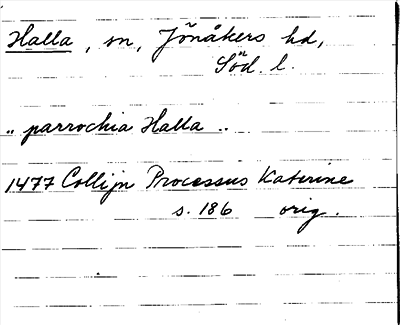 Halla, sn, Jönåkers hd,
Söd. l.
.. parrochia Halla ..
1477 Collijn Processus Katerine
s. 186 orig.